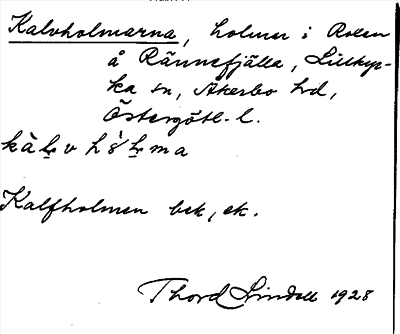 Kalvholmarna, holmar i Roxen
å Rännefjälla, Lillkyr-
ka sn, Åkerbo hd,
Östergötl. l.
kàlvhòlma
Kalfholmen bek, ek.
Thord Lindell 1928